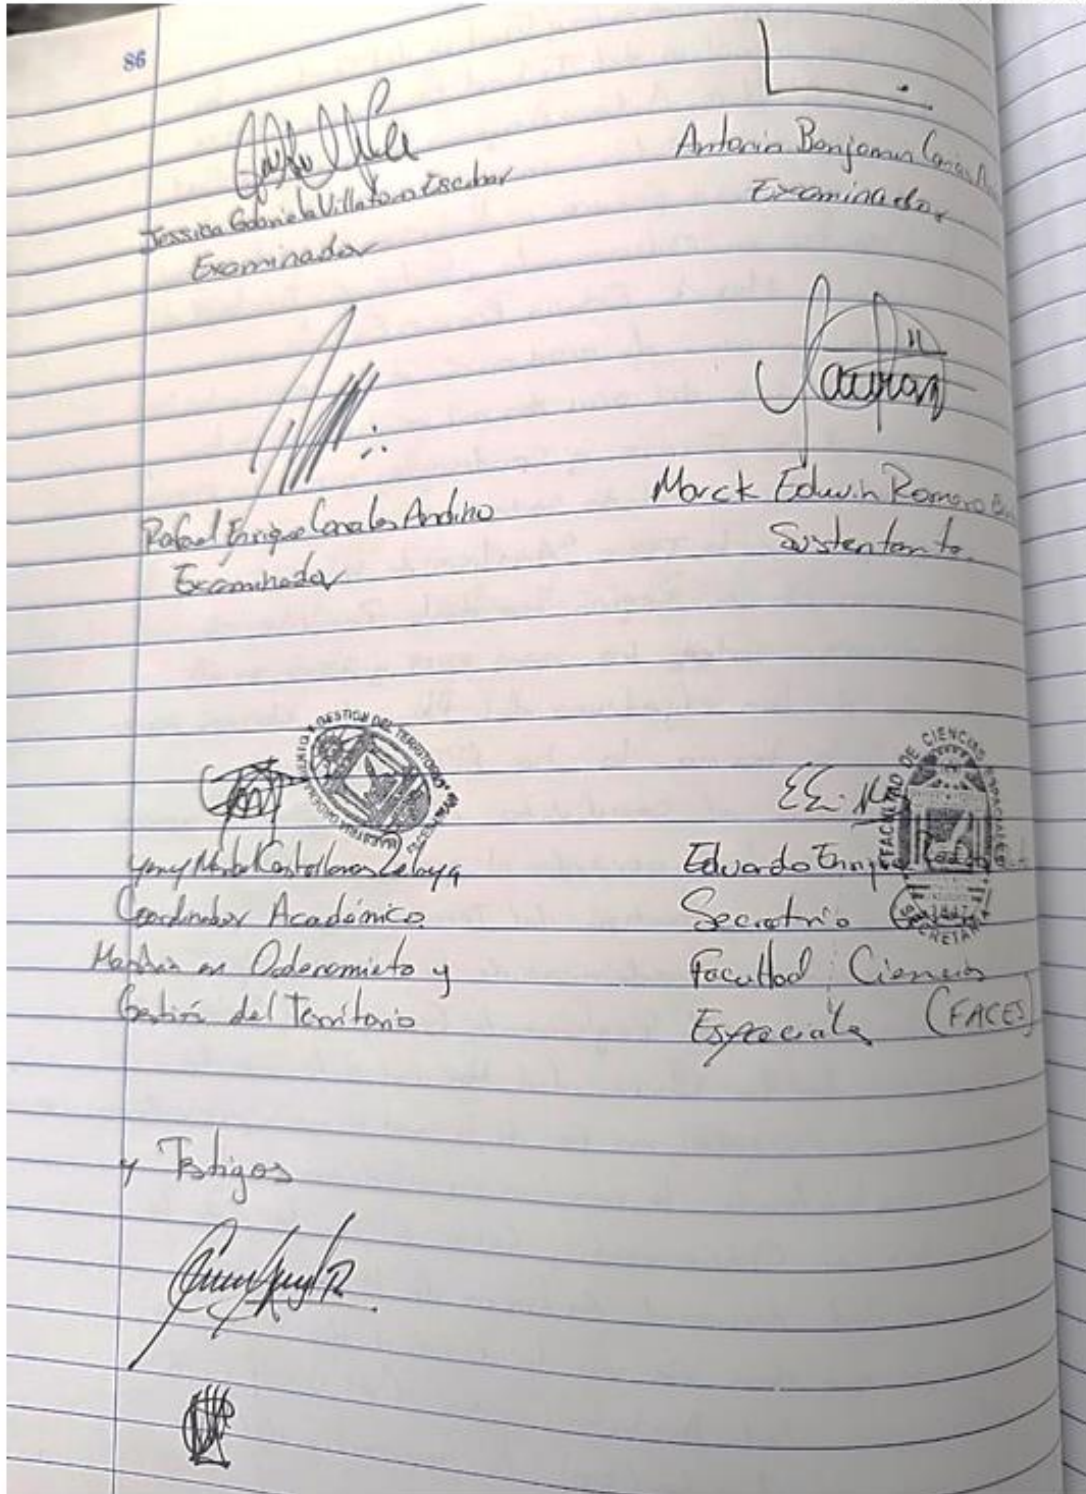 86
Jessica Gabriela Villatoro Escobar
Examinador
Antonio Benjamin
Examinador
Rafael Enrique Canales Andino
Examinador
Marck Edwin Romero
Sustentante.
GESTION DEL TERRITORIO
Yeny Castellanos Zelaya
Coordinador Académico
Maestria en Ordenamieto y
Gestión del Territorio
FACULTAD DE CIENCIAS ESPACIALES
1847
SECRETARIA
Eduardo Enrique
Secretrio
Facultad Ciencias
Espaciales (FACES)
y Testigos